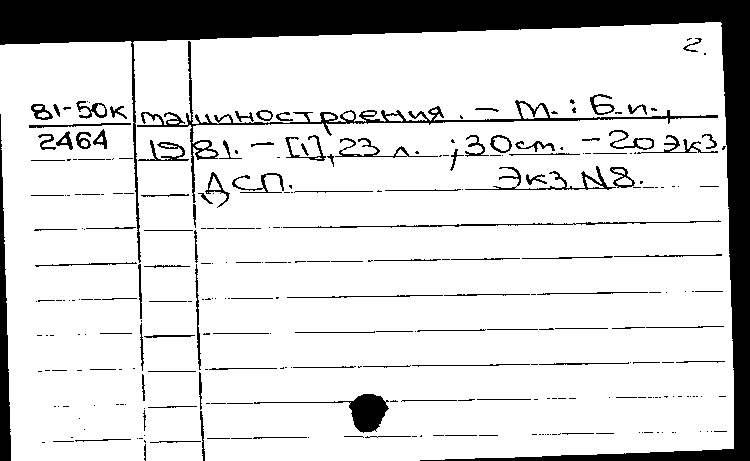 2.
81-50к машиностроения. - М. : Б.и.,
2464 1981. - [1], 23 л. ; 30см. - 20 экз.
ДСП. Экз. N8.